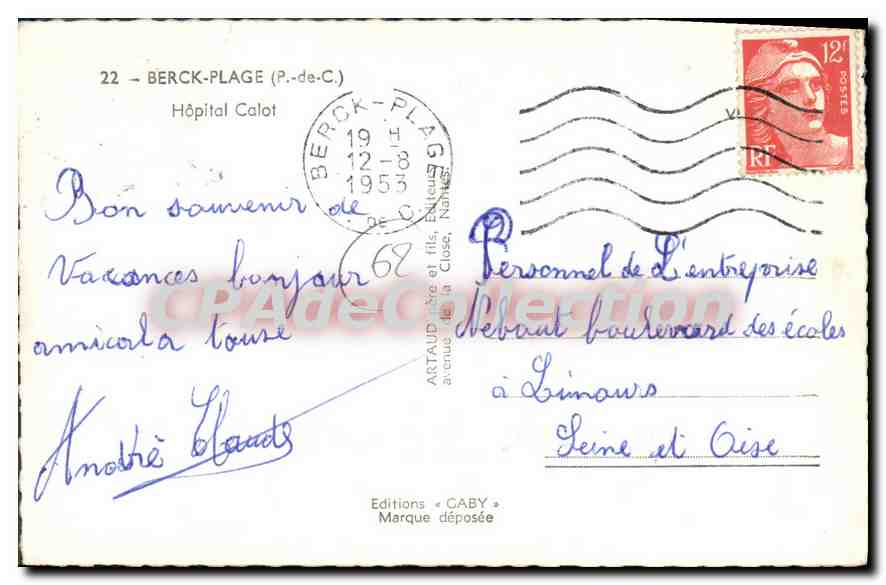 22 - BERCK-PLAGE (P.-de-C.)
Hôpital Calot
BERCK-PLAGE
19 H
12-8
1953
P. DE C.
12F
POSTES
RF
Bon souvenir de
Vacances bonjour
amicala touse
André Claude
62
ARTAUD père et fils, Editeurs
avenue de la Close, Nantes
Personnel de L'entreprise
Nebout boulevard des écoles
à Limours
Seine et Oise
Editions « GABY »
Marque déposée
CPAdeCollection